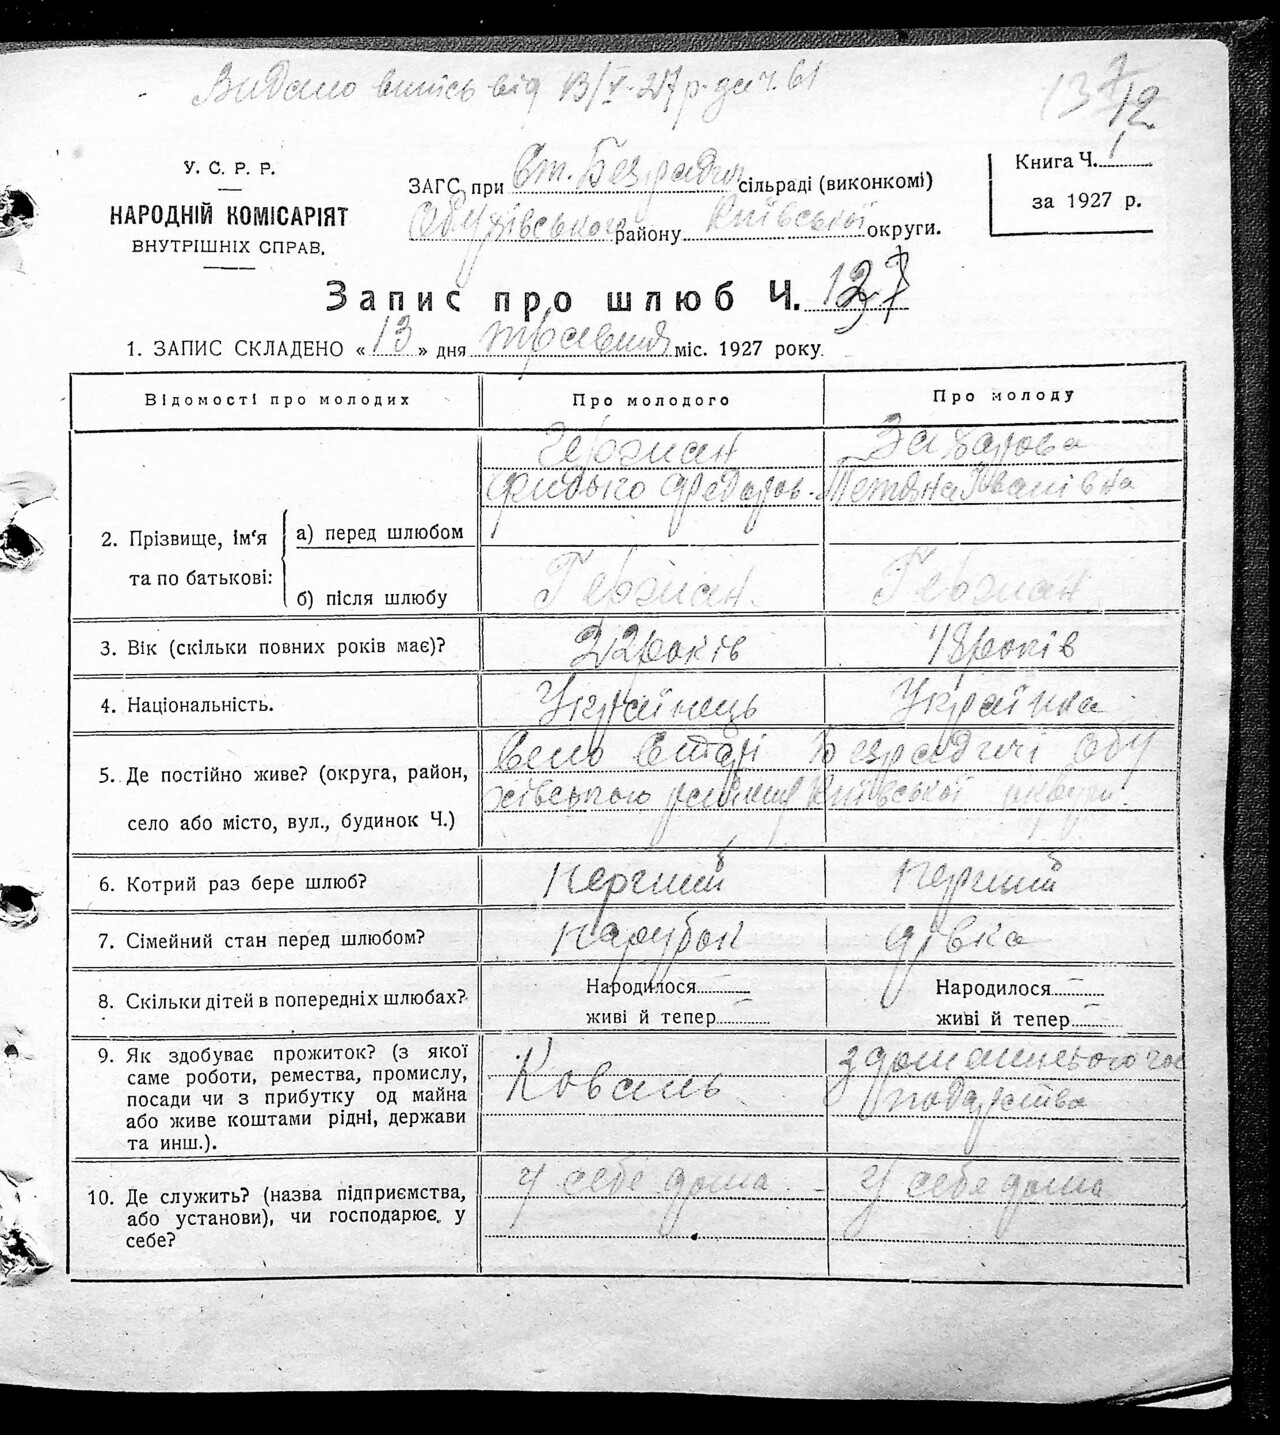 Видано випись від 13/V-27 р. за ч. 61
У. С. Р. Р.
НАРОДНІЙ КОМІСАРІЯТ
ВНУТРІШНІХ СПРАВ.
ЗАГС при Ст. Безрадич сільраді (виконкомі)
Обухівського району Київської округи.
Книга Ч. 1
за 1927 р.
Запис про шлюб Ч.
1. ЗАПИС СКЛАДЕНО « 13 » дня травня міс. 1927 року.
Відомості про молодих Про молодого Про молоду
2. Прізвище, ім'я та по батькові: а) перед шлюбом
Герман Захарова
Федоров. Тетяна Іванівна
б) після шлюбу Герман Герман
3. Вік (скільки повних років має)? 22 років 18 років
4. Національність. Українець Українка
5. Де постійно живе? (округа, район,
село або місто, вул., будинок Ч.)
Село Старі Безрадичі Обу
хівського району Київської округи
6. Котрий раз бере шлюб? перший перший
7. Сімейний стан перед шлюбом? парубок дівка
8. Скільки дітей в попередніх шлюбах? Народилося — Народилося —
живі й тепер — живі й тепер —
9. Як здобуває прожиток? (з якої
саме роботи, ремества, промислу,
посади чи з прибутку од майна
або живе коштами рідні, держави
та инш.).
Коваль з домашнього гос
подарства
10. Де служить? (назва підприємства,
або установи), чи господарює у
себе?
У себе дома У себе дома